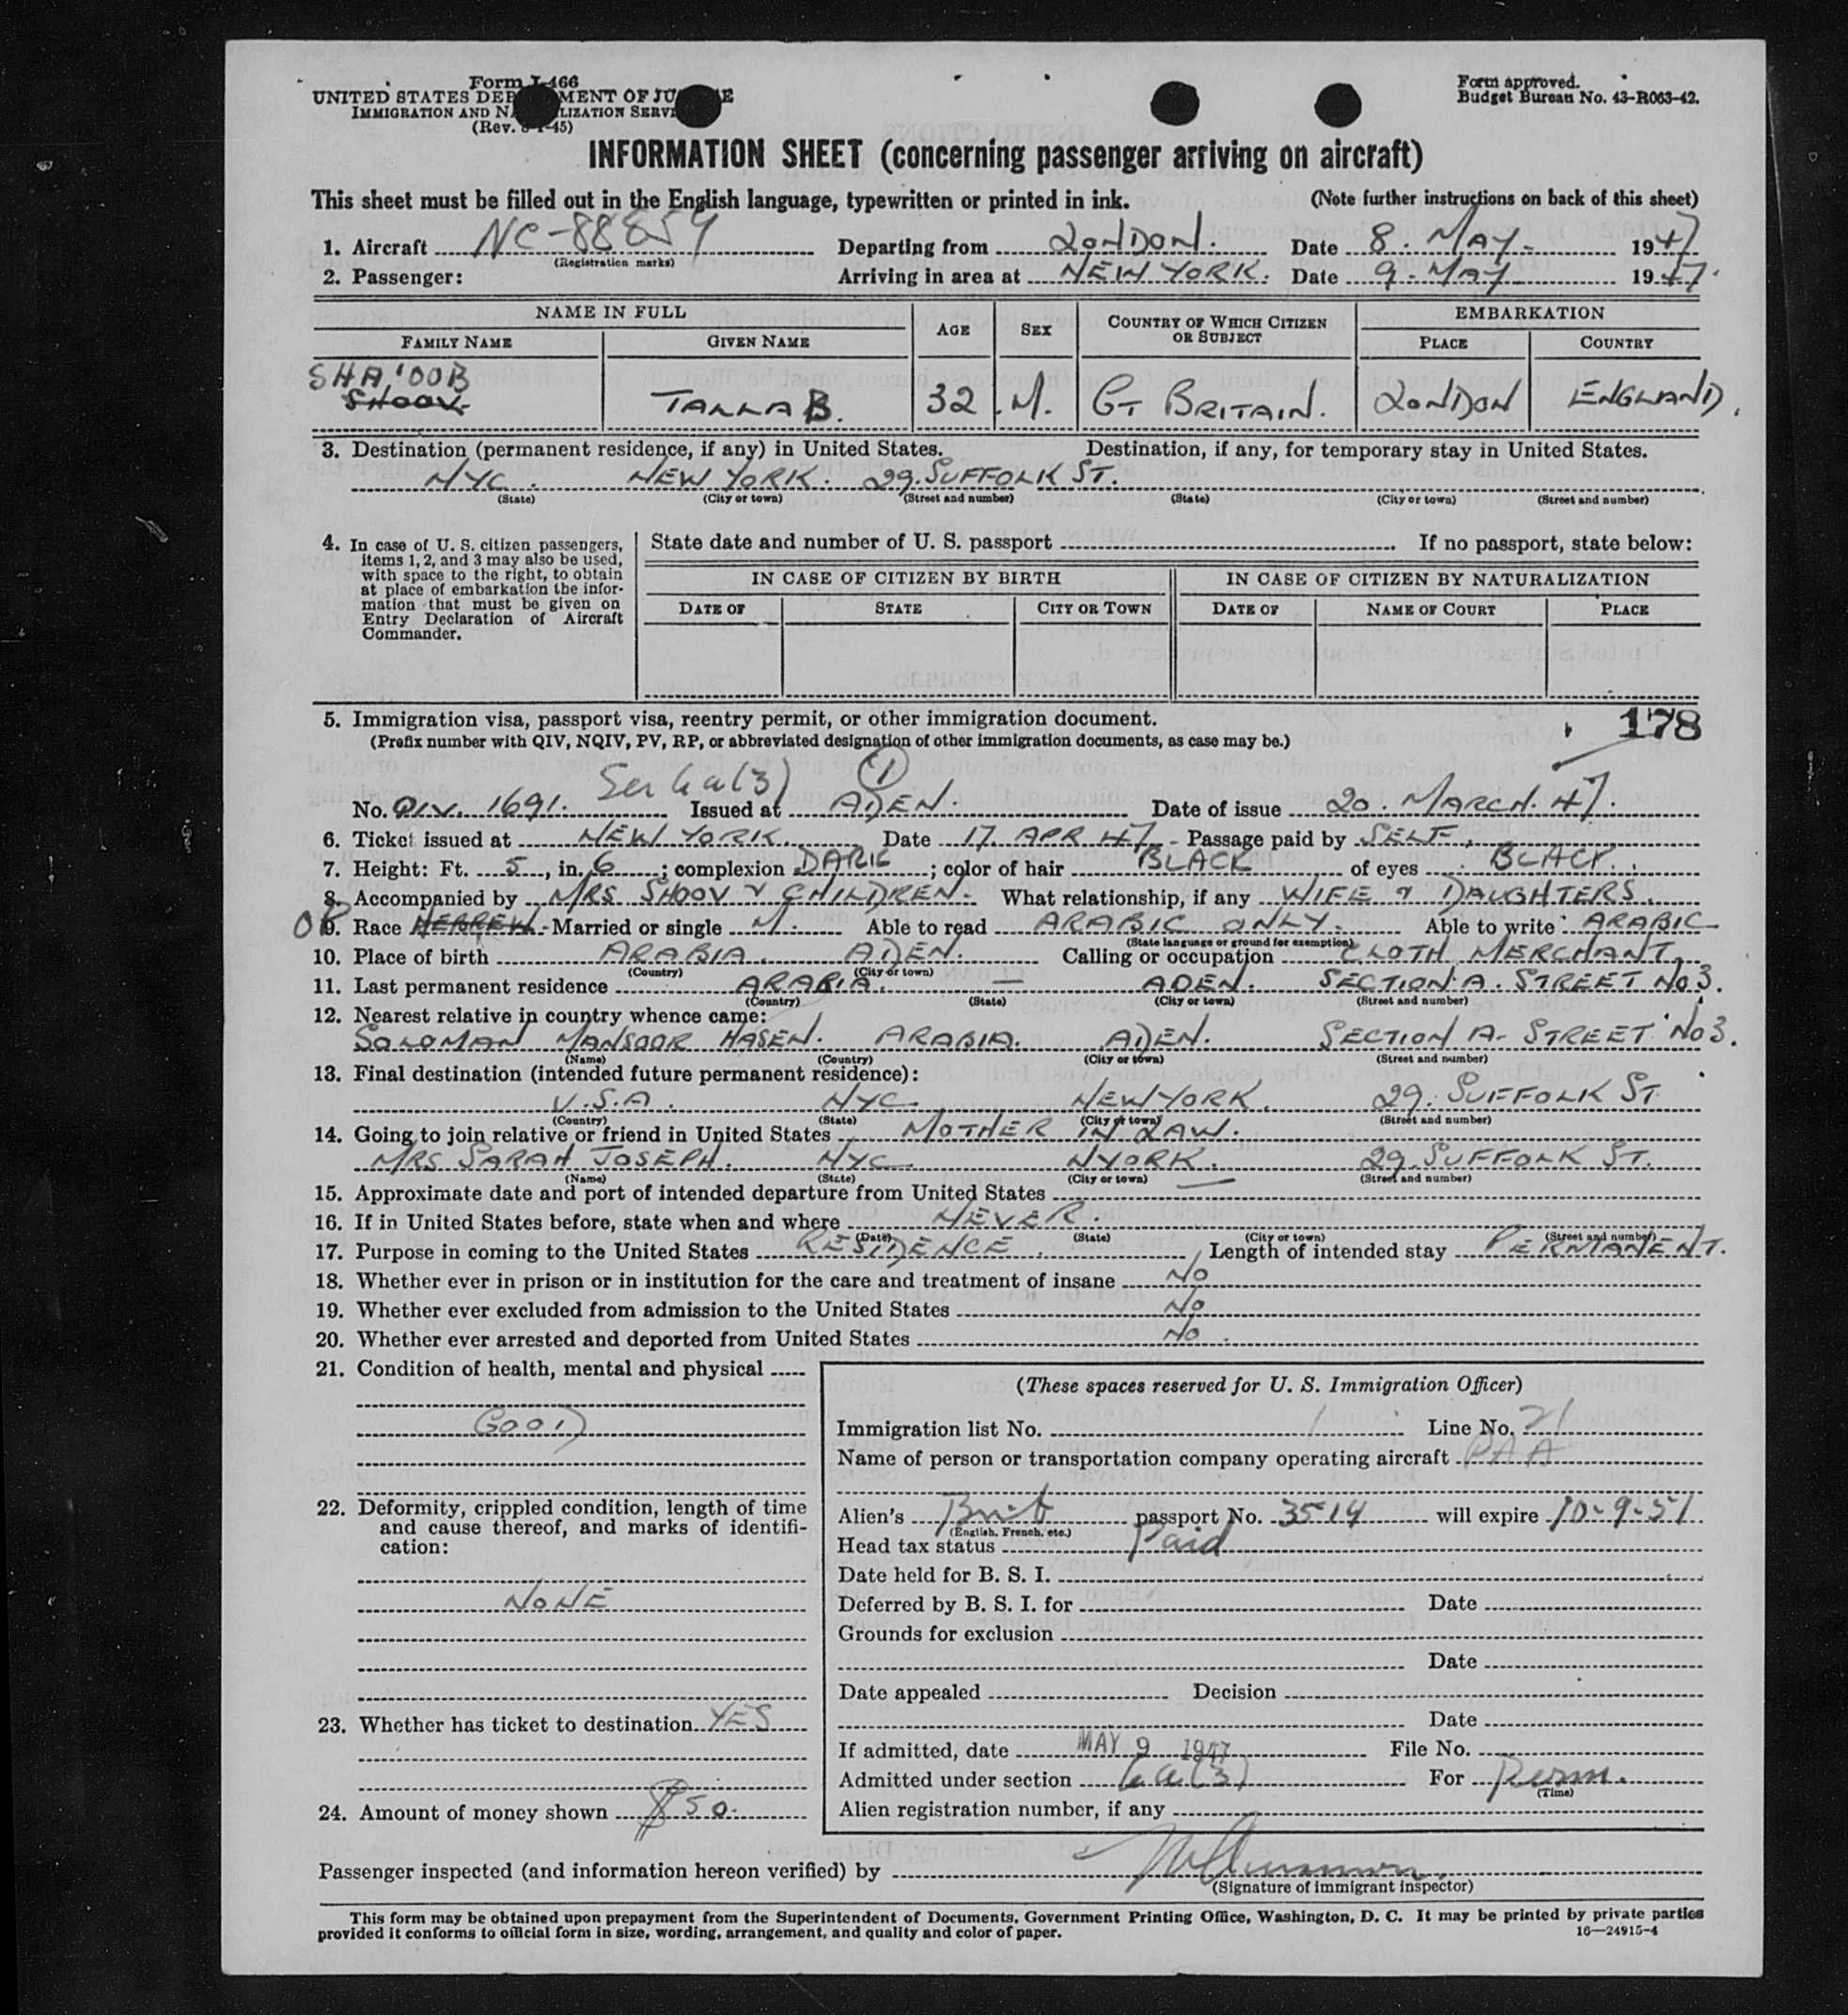 Form I-466
UNITED STATES DEPARTMENT OF JUSTICE
IMMIGRATION AND NATURALIZATION SERVICE
(Rev. -45)
Form approved.
Budget Bureau No. 43-R063-42.
INFORMATION SHEET (concerning passenger arriving on aircraft)
This sheet must be filled out in the English language, typewritten or printed in ink. (Note further instructions on back of this sheet)
1. Aircraft NC-88859 Departing from LONDON. Date 8. MAY. 1947
(Registration marks)
2. Passenger: Arriving in area at NEW YORK. Date 9. MAY 1947.
NAME IN FULL AGE SEX COUNTRY OF WHICH CITIZEN OR SUBJECT EMBARKATION
FAMILY NAME GIVEN NAME PLACE COUNTRY
SHA'OOB
SHOOV. TALLA B. 32 M. GT BRITAIN. LONDON ENGLAND.
3. Destination (permanent residence, if any) in United States. Destination, if any, for temporary stay in United States.
NYC. NEW YORK. 29. SUFFOLK ST.
(State) (City or town) (Street and number) (State) (City or town) (Street and number)
4. In case of U. S. citizen passengers, items 1, 2, and 3 may also be used, with space to the right, to obtain at place of embarkation the information that must be given on Entry Declaration of Aircraft Commander.
State date and number of U. S. passport If no passport, state below:
IN CASE OF CITIZEN BY BIRTH IN CASE OF CITIZEN BY NATURALIZATION
DATE OF STATE CITY OR TOWN DATE OF NAME OF COURT PLACE
5. Immigration visa, passport visa, reentry permit, or other immigration document. 178
(Prefix number with QIV, NQIV, PV, RP, or abbreviated designation of other immigration documents, as case may be.)
Sec 6a(3) 1
No. QIV. 1691. Issued at ADEN. Date of issue 20. MARCH. 47.
6. Ticket issued at NEW YORK. Date 17. APR 47 Passage paid by SELF.
7. Height: Ft. 5, in. 6; complexion DARK; color of hair BLACK of eyes BLACK.
8. Accompanied by MRS SHOOV & CHILDREN. What relationship, if any WIFE & DAUGHTERS.
9. Race HEBREW. Married or single M. Able to read ARABIC ONLY. Able to write ARABIC
(State language or ground for exemption)
10. Place of birth ARABIA. ADEN. Calling or occupation CLOTH MERCHANT.
(Country) (City or town)
11. Last permanent residence ARABIA. — ADEN. SECTION A. STREET No 3.
(Country) (State) (City or town) (Street and number)
12. Nearest relative in country whence came:
SOLOMAN MANSOOR HASEN. ARABIA. ADEN. SECTION A- STREET No 3.
(Name) (Country) (City or town) (Street and number)
13. Final destination (intended future permanent residence):
U.S.A. NYC. NEW YORK. 29. SUFFOLK ST.
(Country) (State) (City or town) (Street and number)
14. Going to join relative or friend in United States MOTHER IN LAW.
MRS SARAH JOSEPH. NYC. NYORK. 29. SUFFOLK ST.
(Name) (State) (City or town) (Street and number)
15. Approximate date and port of intended departure from United States —
16. If in United States before, state when and where NEVER.
(Date) (State) (City or town) (Street and number)
17. Purpose in coming to the United States RESIDENCE. Length of intended stay PERMANENT.
18. Whether ever in prison or in institution for the care and treatment of insane No
19. Whether ever excluded from admission to the United States No
20. Whether ever arrested and deported from United States No.
21. Condition of health, mental and physical
GOOD
22. Deformity, crippled condition, length of time and cause thereof, and marks of identification:
NONE
23. Whether has ticket to destination YES
24. Amount of money shown $50.
(These spaces reserved for U. S. Immigration Officer)
Immigration list No. 1 Line No. 21
Name of person or transportation company operating aircraft PAA
Alien's Brit passport No. 3514 will expire 10-9-51
(English, French, etc.)
Head tax status Paid
Date held for B. S. I.
Deferred by B. S. I. for Date
Grounds for exclusion
Date
Date appealed Decision
Date
If admitted, date MAY 9 1947 File No.
Admitted under section 6a(3) For Perm.
(Time)
Alien registration number, if any
Passenger inspected (and information hereon verified) by
(Signature of immigrant inspector)
This form may be obtained upon prepayment from the Superintendent of Documents, Government Printing Office, Washington, D. C. It may be printed by private parties
provided it conforms to official form in size, wording, arrangement, and quality and color of paper. 16—24915-4